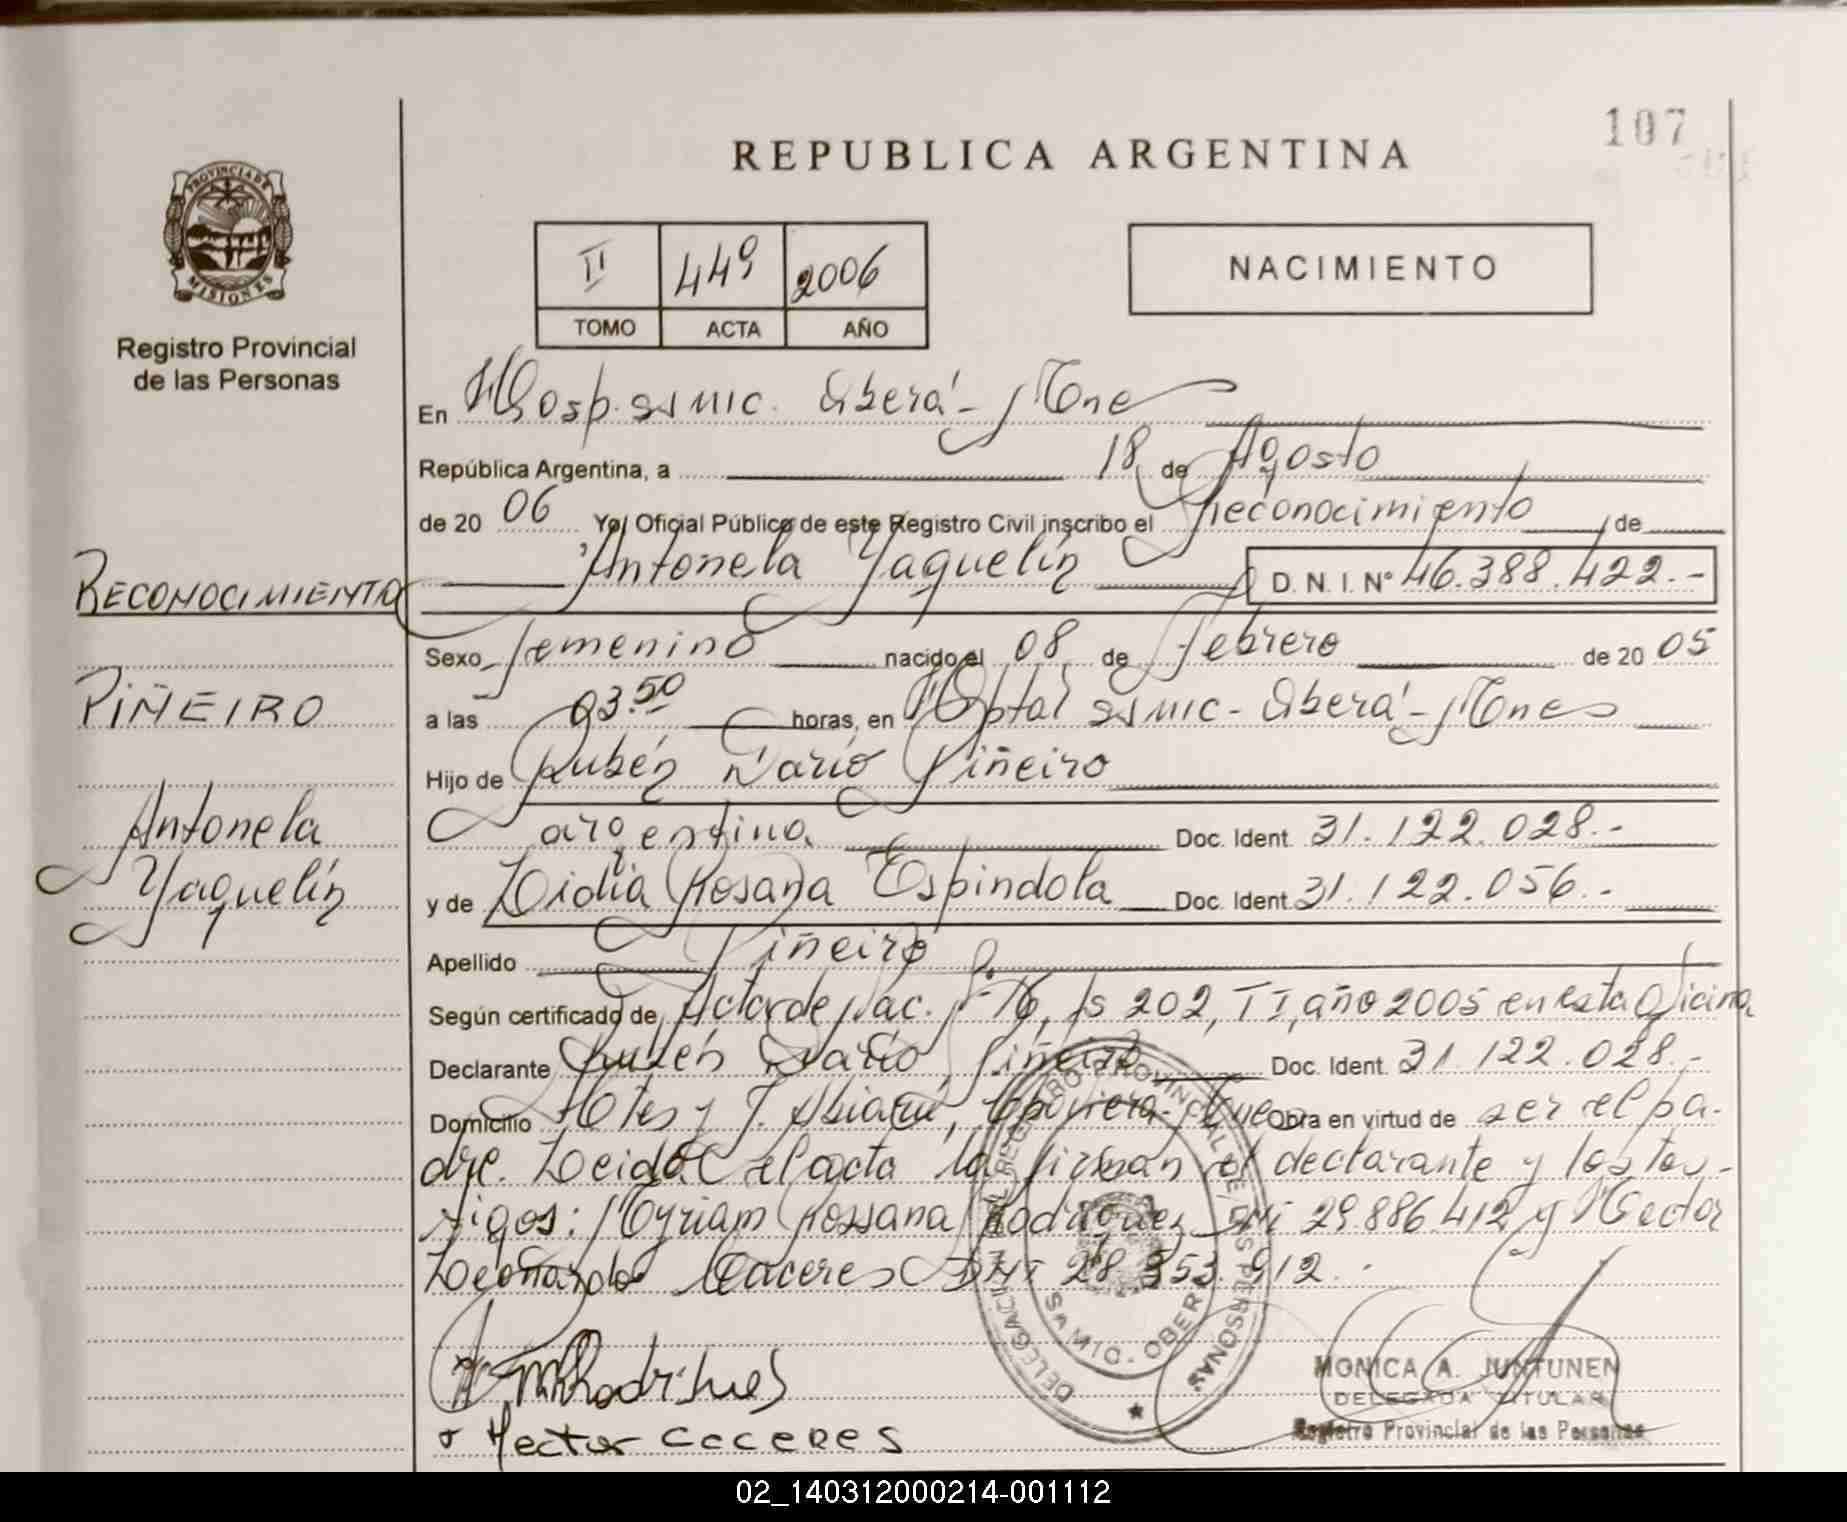 107
REPUBLICA ARGENTINA
PROVINCIA DE
MISIONES
Registro Provincial
de las Personas
II 449 2006
TOMO ACTA AÑO
NACIMIENTO
En Hosp. Samic. Oberá - Mnes
República Argentina, a 18 de Agosto
de 20 06 Yo, Oficial Público de este Registro Civil inscribo el Reconocimiento de
Antonela Yaquelín D. N. I. Nº 46.388.422.-
RECONOCIMIENTO
Sexo femenino nacido el 08 de febrero de 20 05
PIÑEIRO
a las 03.50 horas, en Hptal Samic - Oberá - Mnes
Hijo de Rubén Darío Piñeiro
argentina Doc. Ident. 31.122.028.-
Antonela
Yaquelín
y de Lidia Rosana Espindola Doc. Ident. 31.122.056.-
Apellido Piñeiro
Según certificado de Acta de Nac. nº 76, fs 202, T I, año 2005 en esta Oficina
Declarante Rubén Darío Piñeiro Doc. Ident. 31.122.028.-
Domicilio y Que Obra en virtud de ser el pa-
dre. Leida el acta la firman el declarante y los tes-
tigos: Myriam Rossana Rodriguez DNI 29.886.412 y Hector
Leonardo Caceres DNI 28.353.912.-
DELEGACION DEL REGISTRO PROVINCIAL DE LAS PERSONAS
SAMIC - OBERA
Hector Caceres
MONICA A. JUNTUNEN
DELEGADA TITULAR
Registro Provincial de las Personas
02_140312000214-001112